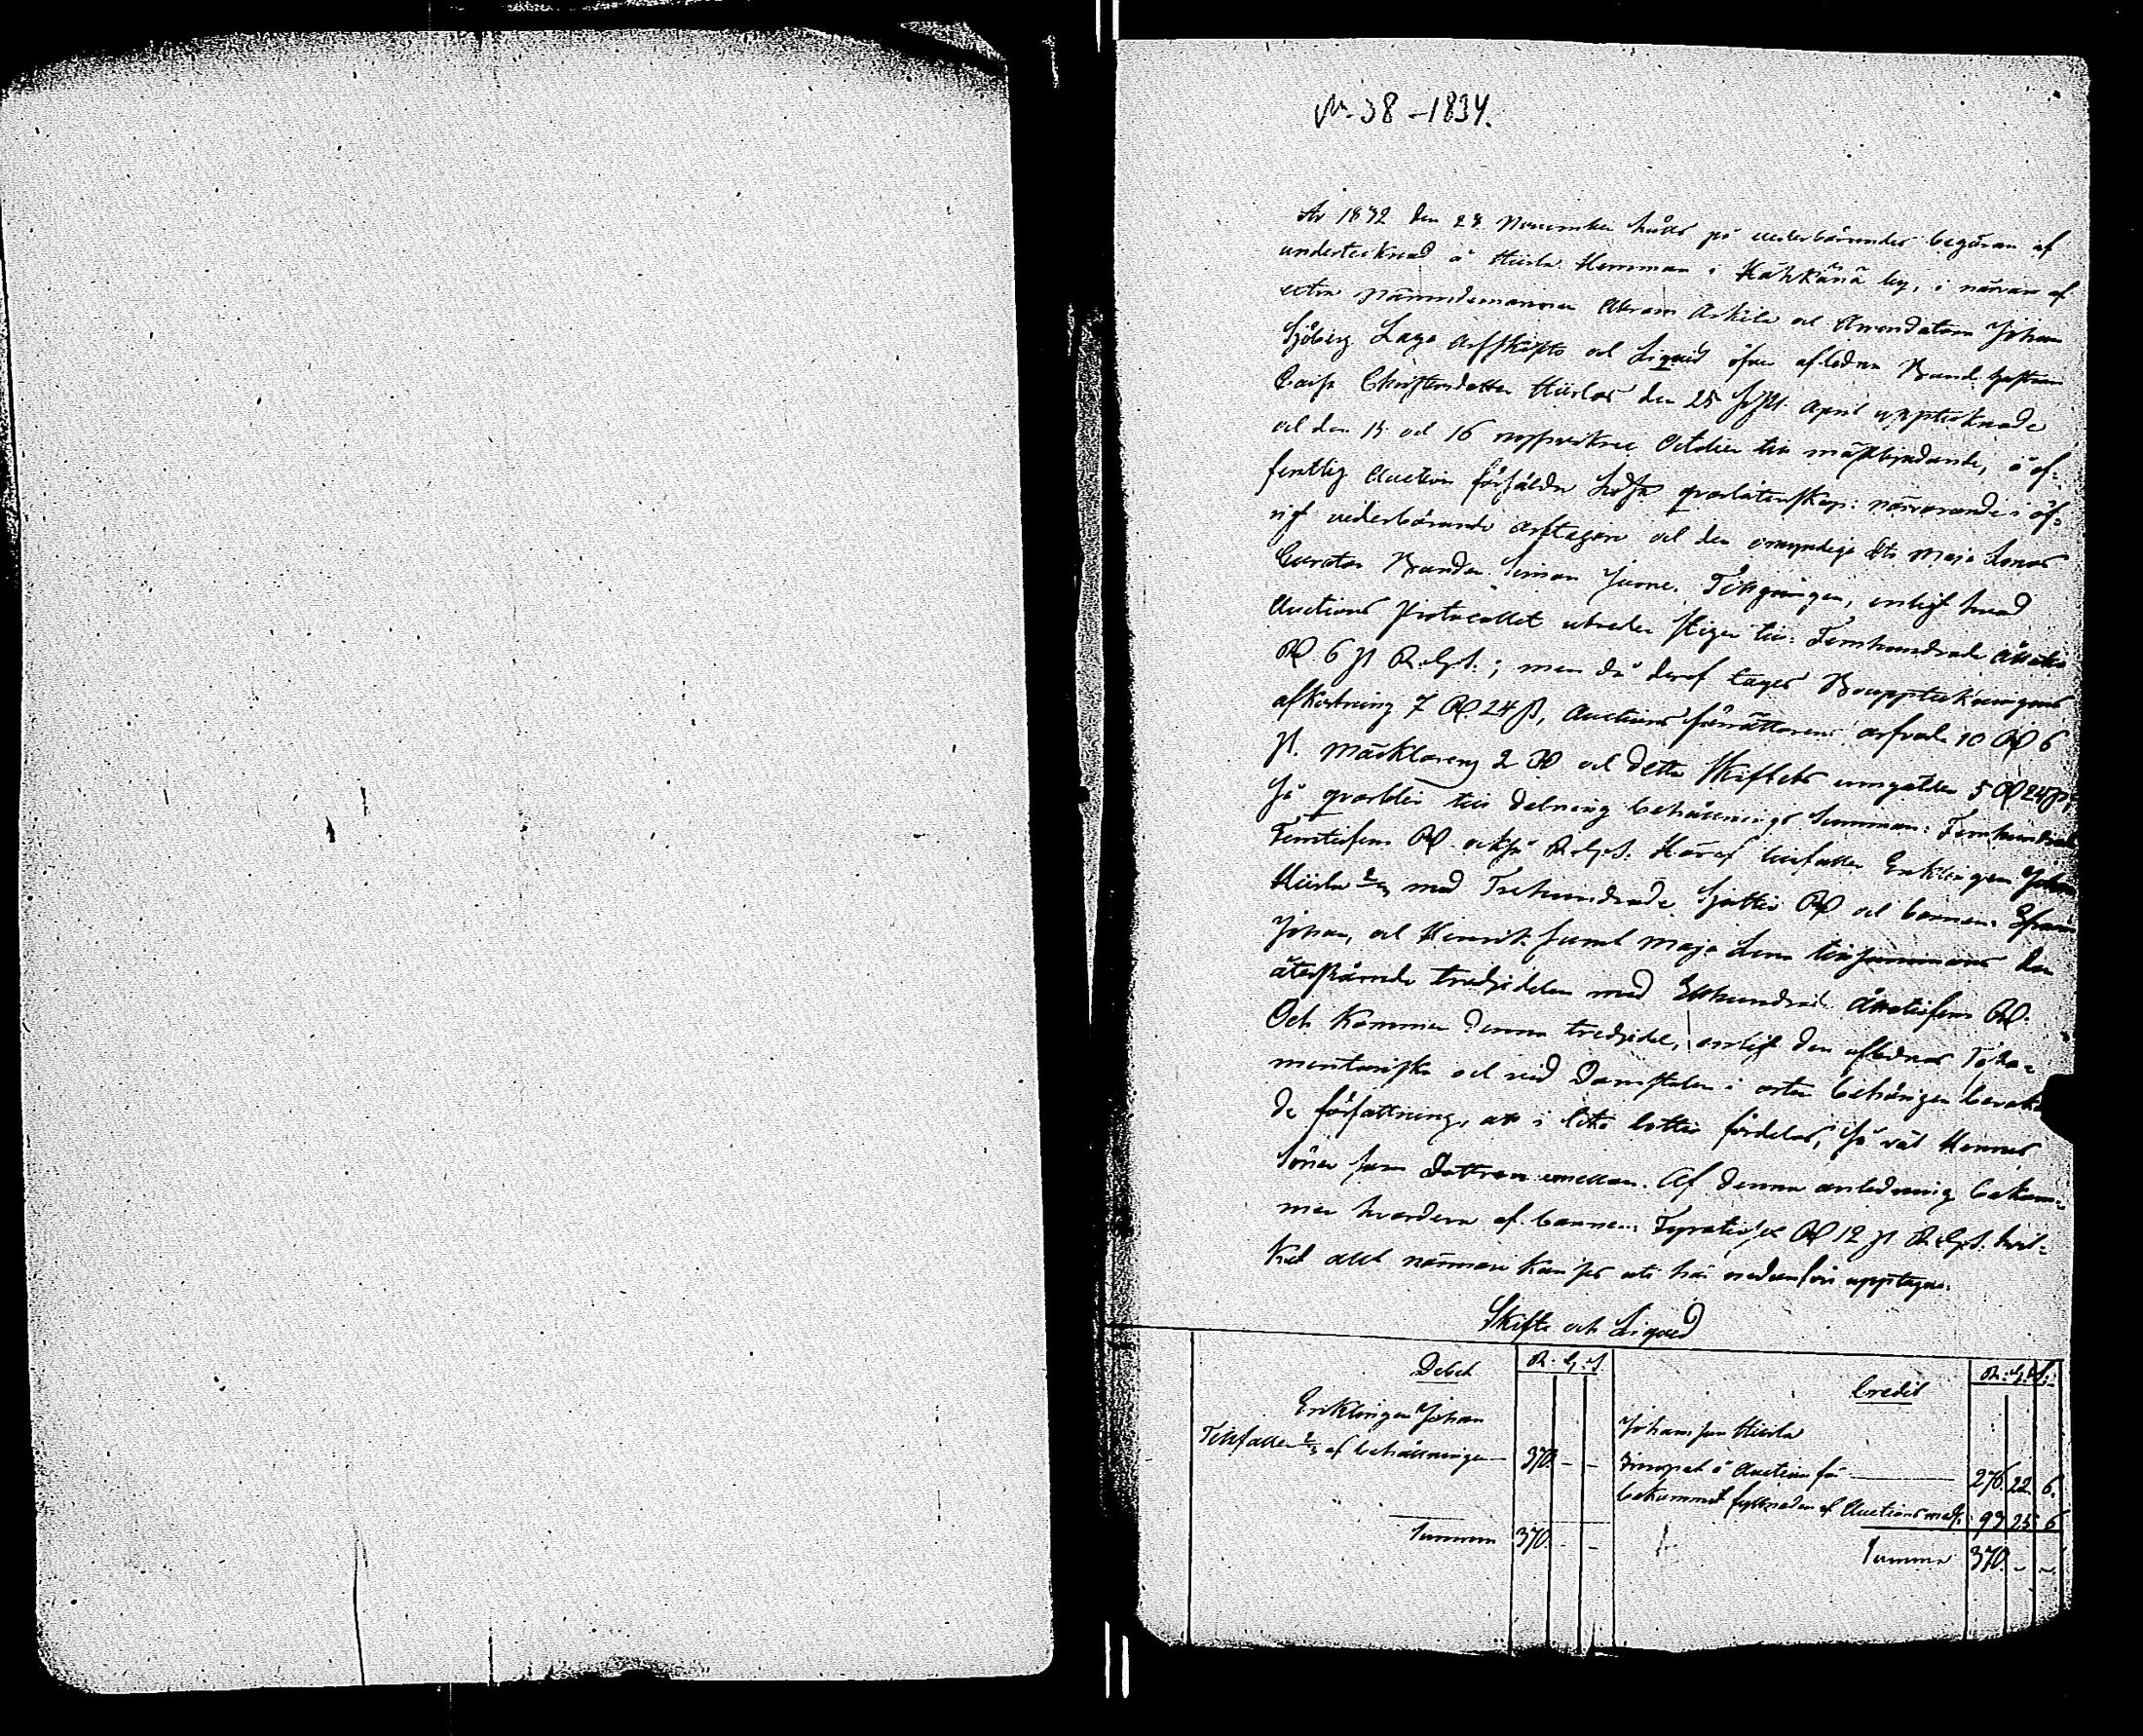 N:o 38 – 1834.
År 1832 den 24 November hölls på vederbörandes begäran af
undertecknad å Hiisla Hemman i Kähkänä by, i närvaro af
extra Nämndemannen Abram Askila och Arrendatorn Johan
Sjöberg Laga Arfskifte och Liqvid öfver aflidna Bonde hustrun
Caisa Christersdotter Hiislas den 25 April upptecknade
och den 15 och 16 October till mästbjudande, å of-
fentlig Auction försålda Lösa qvarlåtenskap: närvarande i öf-
rigt vederbörande arftagare och den omyndiga Maja Lenas
Curator Bonden Simon Tillgången, enligt hvad
Auctions Protocollet utreder stiger till: Femhundrade Åttatio
R. 6 st R.Gs.; men då deraf tages Bouppteckningens
afkortning 7 R. 24 st, Auctions förrättarens arfvode 10 R 6
st. 2 R och detta Skiftets omgälder 5 R 24 st,
så qvarblir till delning behållnings Summan: Femhundrade
Femtiofem R. R.Gs. Häraf tillfaller Enklingen Johan
Hiisla 2/3 med Trehundrade Sjuttio R och barnen: Efraim
Johan, och Henrik samt Maja Lena tillsammans den
återstående tredjedelen med Etthundrade Åttatiofem R.
Och kommer denna tredjedel, enligt den aflidnas Testa-
mentariska och vid Domstolen i orten behörigen bevaka-
de författning, att i lika lotter fördelas, så väl Hennes
Söner som Dottren emellan. Af denna anledning bekom-
mer hvardera af barnen: Fyratiosex R 12 st R.Gs. hvil-
ket allt närmare kan ses att här nedanföre upptagas.
Skifte och Liqvid
Debet R. G. S
Enklingen Johan
Tillfaller 2/3 af behållningen 370. – –
Summa 370. – –
Credit R. G. S.
Johansson Hiisla
Inropat å Auction för 276. 22. 6.
bekommit fyllnaden af Auctions med. 93 25 6
Summa 370. – –